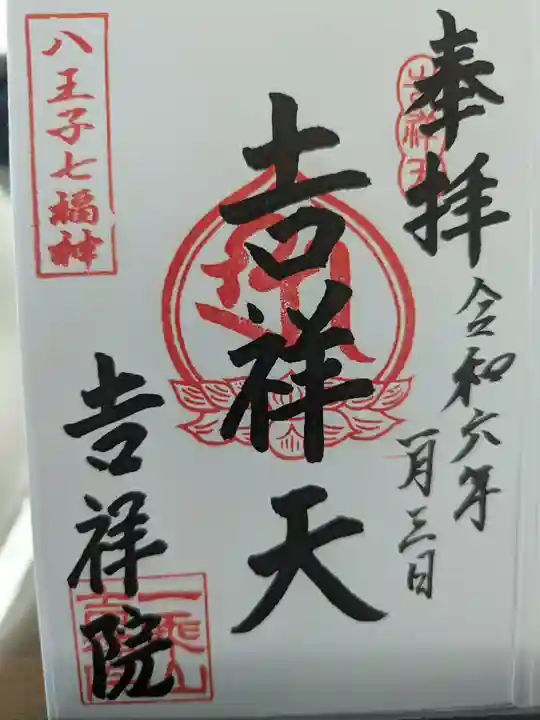 奉拝
令和六年
一月三日
吉祥天
吉祥院
八王子七福神